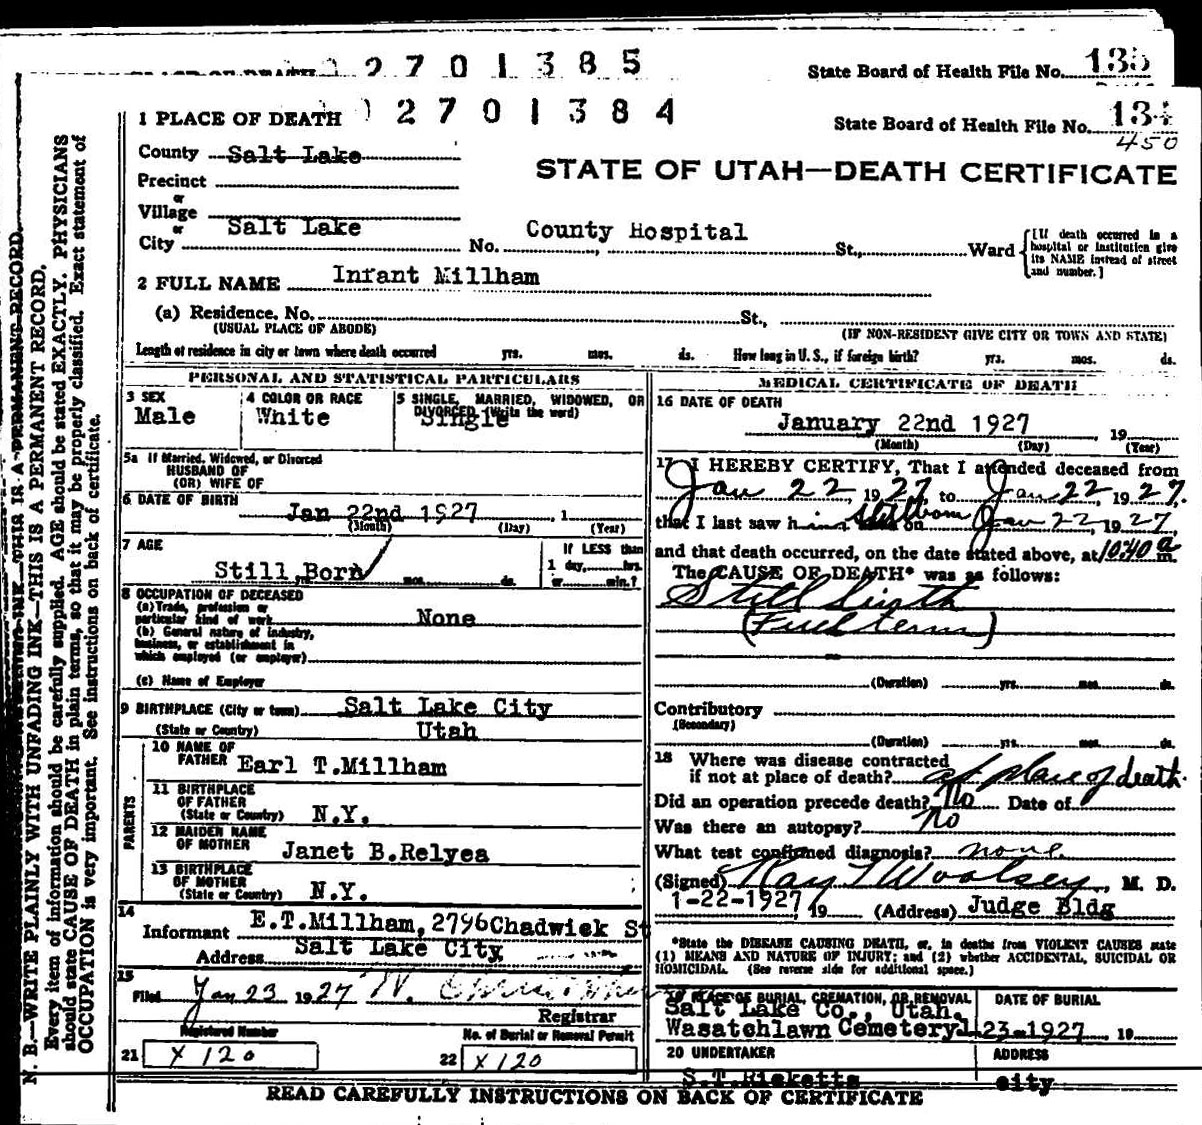 2701385 State Board of Health File No. 135
1 PLACE OF DEATH 2701384 State Board of Health File No. 134
450
County Salt Lake
STATE OF UTAH—DEATH CERTIFICATE
Precinct
or
Village
or
City Salt Lake No. County Hospital St., Ward
[If death occurred in a hospital or institution give its NAME instead of street and number.]
2 FULL NAME Infant Millham
(a) Residence. No. St.,
(USUAL PLACE OF ABODE) (IF NON-RESIDENT GIVE CITY OR TOWN AND STATE)
Length of residence in city or town where death occurred yrs. mos. ds. How long in U. S., if foreign birth? yrs. mos. ds.
PERSONAL AND STATISTICAL PARTICULARS
3 SEX Male
4 COLOR OR RACE White
5 SINGLE, MARRIED, WIDOWED, OR DIVORCED (Write the word) Single
5a If Married, Widowed, or Divorced
HUSBAND OF
(OR) WIFE OF
6 DATE OF BIRTH Jan 22nd 1927
(Month) (Day) , 1 (Year)
7 AGE Still Born yrs. mos. ds.
If LESS than
1 day, hrs.
or min.?
8 OCCUPATION OF DECEASED
(a) Trade, profession or
particular kind of work None
(b) General nature of industry,
business, or establishment in
which employed (or employer)
(c) Name of Employer
9 BIRTHPLACE (City or town) Salt Lake City
(State or Country) Utah
PARENTS
10 NAME OF FATHER Earl T.Millham
11 BIRTHPLACE OF FATHER (State or Country) N.Y.
12 MAIDEN NAME OF MOTHER Janet B.Relyea
13 BIRTHPLACE OF MOTHER (State or Country) N.Y.
14
Informant E.T.Millham, 2796 Chadwick St
Address Salt Lake City
15
Filed Jan 23 1927
Registrar
Registered Number No. of Burial or Removal Permit
21 x 120 22 x 120
MEDICAL CERTIFICATE OF DEATH
16 DATE OF DEATH
January 22nd 1927, 19
(Month) (Day) (Year)
17 I HEREBY CERTIFY, That I attended deceased from
Jan 22, 1927, to Jan 22, 1927.
that I last saw him stillborn on Jan 22, 1927,
and that death occurred, on the date stated above, at 10:40 a m.
The CAUSE OF DEATH* was as follows:
Still birth
(Full term)
(Duration) yrs. mos. ds.
Contributory
(Secondary)
(Duration) yrs. mos. ds.
18 Where was disease contracted
if not at place of death? at place of death.
Did an operation precede death? No Date of
Was there an autopsy? No
What test confirmed diagnosis? none.
(Signed) Ray T Woolsey, M. D.
1-22-1927, 19 (Address) Judge Bldg
*State the DISEASE CAUSING DEATH, or, in deaths from VIOLENT CAUSES state
(1) MEANS AND NATURE OF INJURY; and (2) whether ACCIDENTAL, SUICIDAL OR
HOMICIDAL. (See reverse side for additional space.)
19 PLACE OF BURIAL, CREMATION, OR REMOVAL DATE OF BURIAL
Salt Lake Co., Utah.
Wasatchlawn Cemetery 1 23-1927 19
20 UNDERTAKER ADDRESS
S.T.Ricketts city
READ CAREFULLY INSTRUCTIONS ON BACK OF CERTIFICATE
N. B.—WRITE PLAINLY WITH UNFADING INK—THIS IS A PERMANENT RECORD.
Every item of information should be carefully supplied. AGE should be stated EXACTLY. PHYSICIANS
should state CAUSE OF DEATH in plain terms, so that it may be properly classified. Exact statement of
OCCUPATION is very important. See instructions on back of certificate.